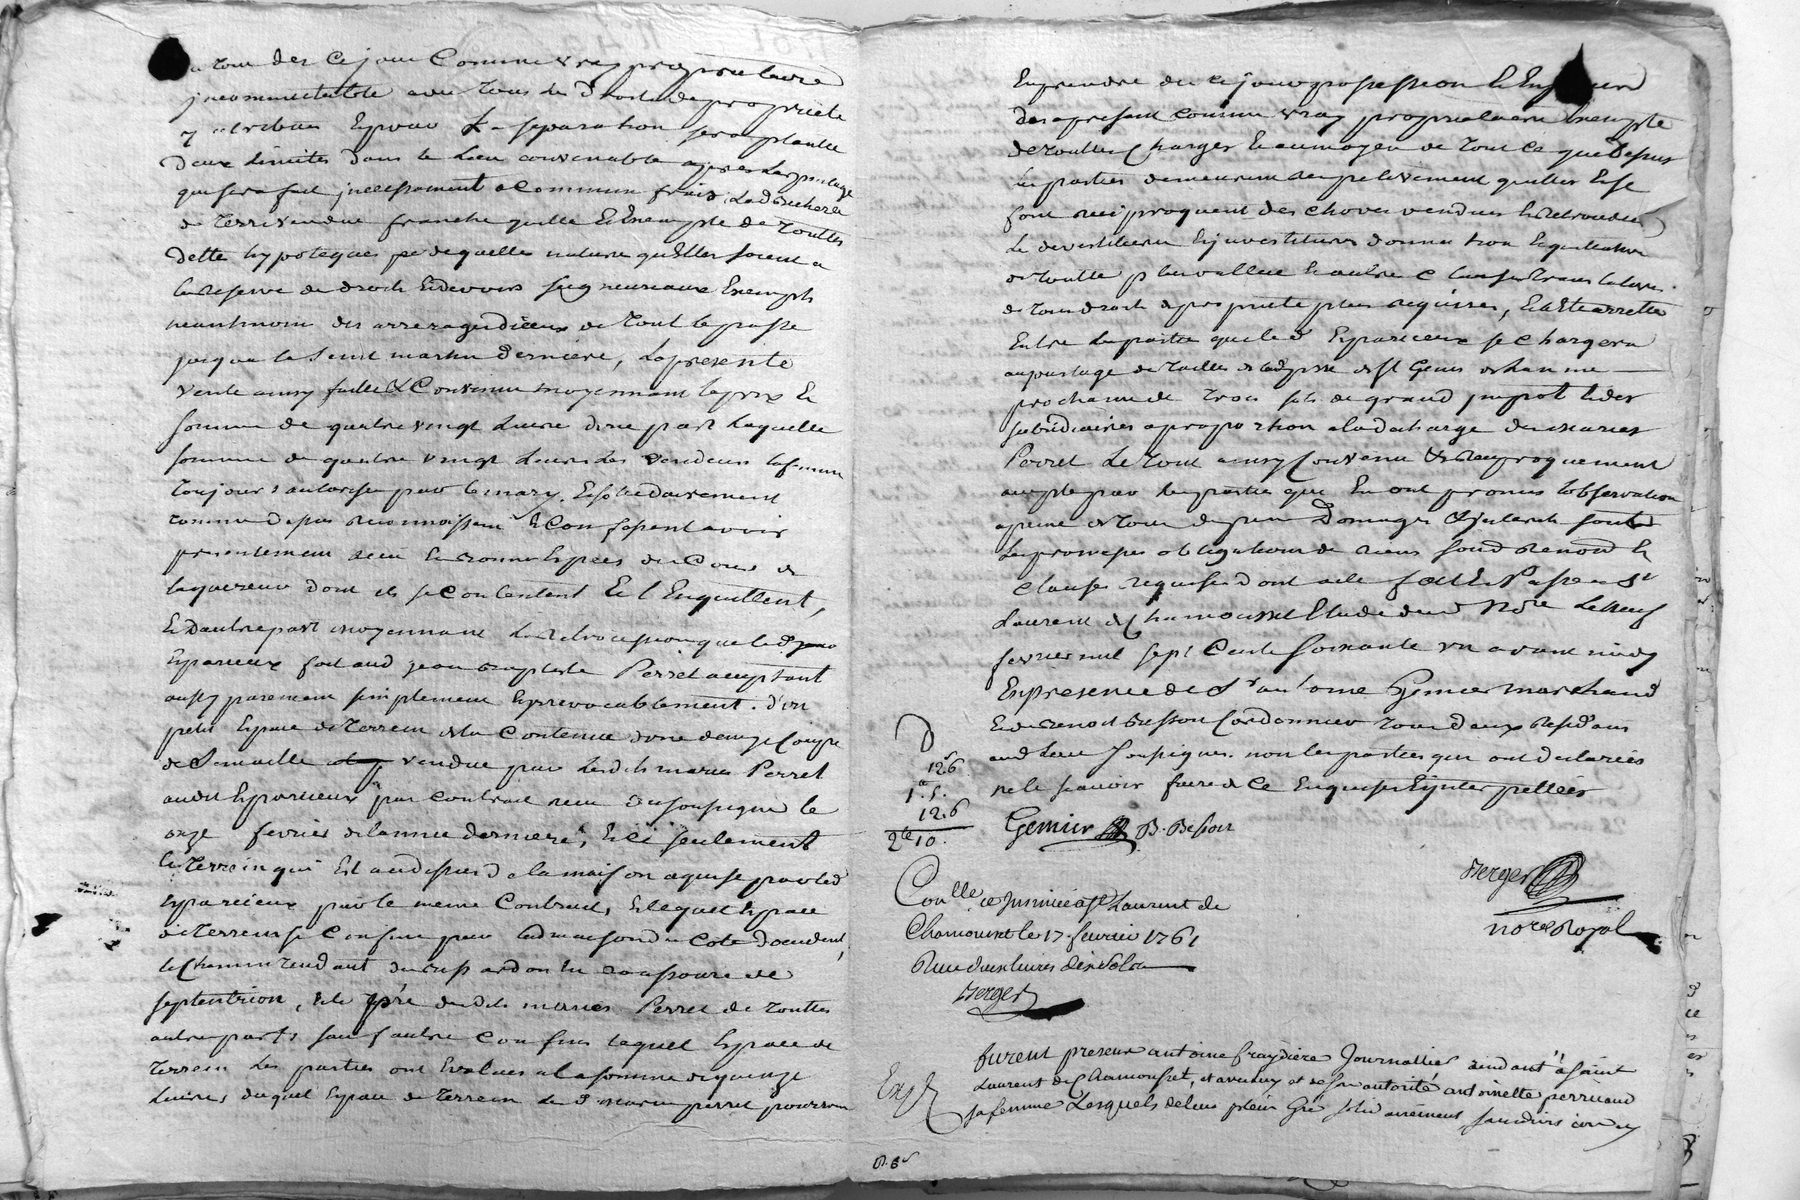 a tour des ce jour comme vray proprietaire
jncommutable avec tous les droits de propriete
y attribuee Et pour La separation sera plantée
deux Limites dans le Lieu convenable apres Larpentage
qui sera fait jncessament a commun frais, Lad. bichere
de terre vendue franche quitte Et Exempte de touttes
dette hypoteques per de quelles nature quElles soient a
la reserve de droits Et devoirs seigneuriaux Exempts
neantmoins des arrerages diceux de tout le passe
jusqua la Saint martin derniere, La presente
vente ainsy faitte Et Convenue moyennant le prix Et
somme de quatre vingt Livre dune part Laquelle
somme de quatre vingt Livres Les vendeurs la femme
toujours autorisée par le mary, Et solidairement
comme dessus reconnoissent Et Confessent avoir
presentement receu En monnoye Especes du Cours de
lacquereur dont ils se Contentent Et l'Enquittent,
Et dautre part moyennant La retrocession que led.
Eparcieux fait aud jean baptiste Perret acceptant
aussy purement simplement Et jrrevocablement. d'un
petit Espace de terrein de la Contenue dune demye Coupe
de Semaille vendue par Lesdits maries Perret
audit Eparcieux par contract receu du soussigné le
onze fevrier de lannee derniere, Et seulement
le terrein qui Est audessus de la maison aquise par led
Eparcieux par le meme Contract, Et lequel Espace
de terrein se Confine par lad maison du Cote doccident,
le Chemin tendant de
septentrion, Et le pré desdits maries Perret de touttes
autre parts sauf autre Confins laquel Espace de
terrein Les parties ont Evalues a la somme de quinze
Livres, duquel Espace de terrein Le d. maries perret pourron
En prendre des ce jour possession Et En jouir
des apresent comme vray proprietaire Exempte
de touttes Charges Et au moyen de tout ce que Dessus
Les parties demeurent respectivement quittes Et se
font reciproquent des choses vendues Et Retrocedees
Le devestiture Et jnvestiture donnation Et quittation
de toutte plus vallue Et autre Clauses translatives
de tous droits de propriete plus requises, Et a Eté arretté
Entre Les parties que led Eparcieux se Chargera
au partage de tailles de lad. psse de St Genis de Lannee
prochaine de trois sols de grand jmpot Et des
subsidiaires a proportion a la decharge des maries
Perret Le tout ainsy Convenu Et reciproquement
accepte par Les parties qui En ont promis lobservation
a peine de tous depens Domages Et jnterets sous
Les promesses obligations de biens soumis renons Et
clauses requises dont acte fait Et Passe a St
Laurent de Chamousset Etude dud Nore Le Neuf
fevrier mil sept Cents soixante un avant midy
En presence de Sr antoine Gemier marchand
Et de Benoit Besson Cordonnier tous deux residans
aud Lieu soussignes. non Les parties qui ont declarées
ne le scavoir faire de Ce Enquises Et jnterpellées
12. 6
1. 5.
12. 6
2tt 10.
Gemier B. Besson
Verger
nore Royal
Conlle ce Jnsinué a St Laurent de
Chamousset le 17. fevrier 1761
Receu deux livres dix sols
Verger
Exp.
furent presens antoine fraydiere Journallier residant a saint
Laurent de Chamousset, et avec luy et de son autorité antoinette perricaud
sa femme Lesquels de leur plein Gré solidairement sans divis